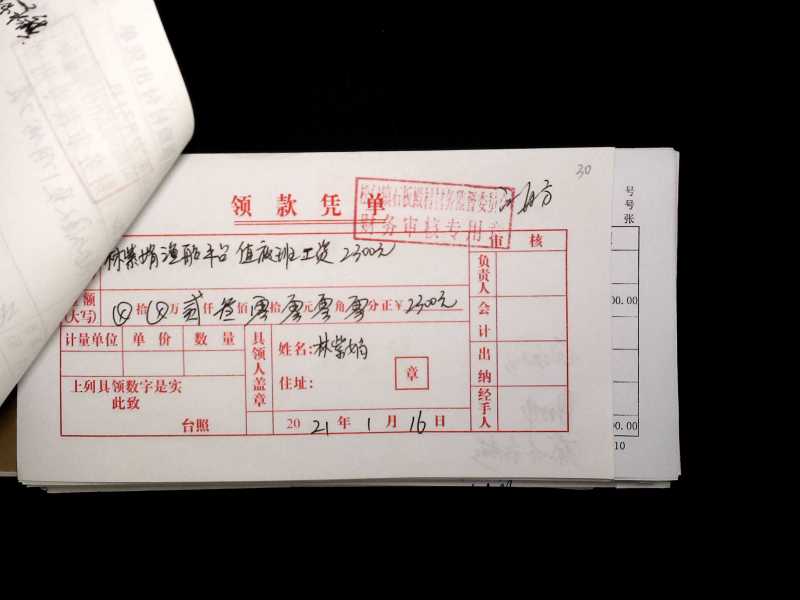 30
领款凭单
财务审核专用章
渔船平台值夜班工资2300元
审核
负责人
额
(大写) ⊗拾⊗万贰仟叁佰零拾零元零角零分正￥2300元
会计
计量单位 单价 数量
具领人盖章
姓名:林紫娟
住址:
章
出纳
上列具领数字是实
此致
台照
2021年1月16日
经手人
号
号
张
00.00
00.00
10